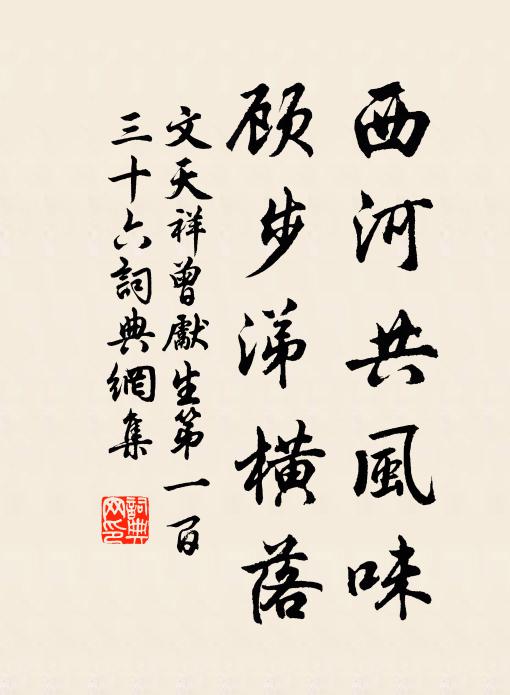 西河共風味
顾步涕橫落
文天祥曾獻生第一百
三十六詞典網集
詞典網印